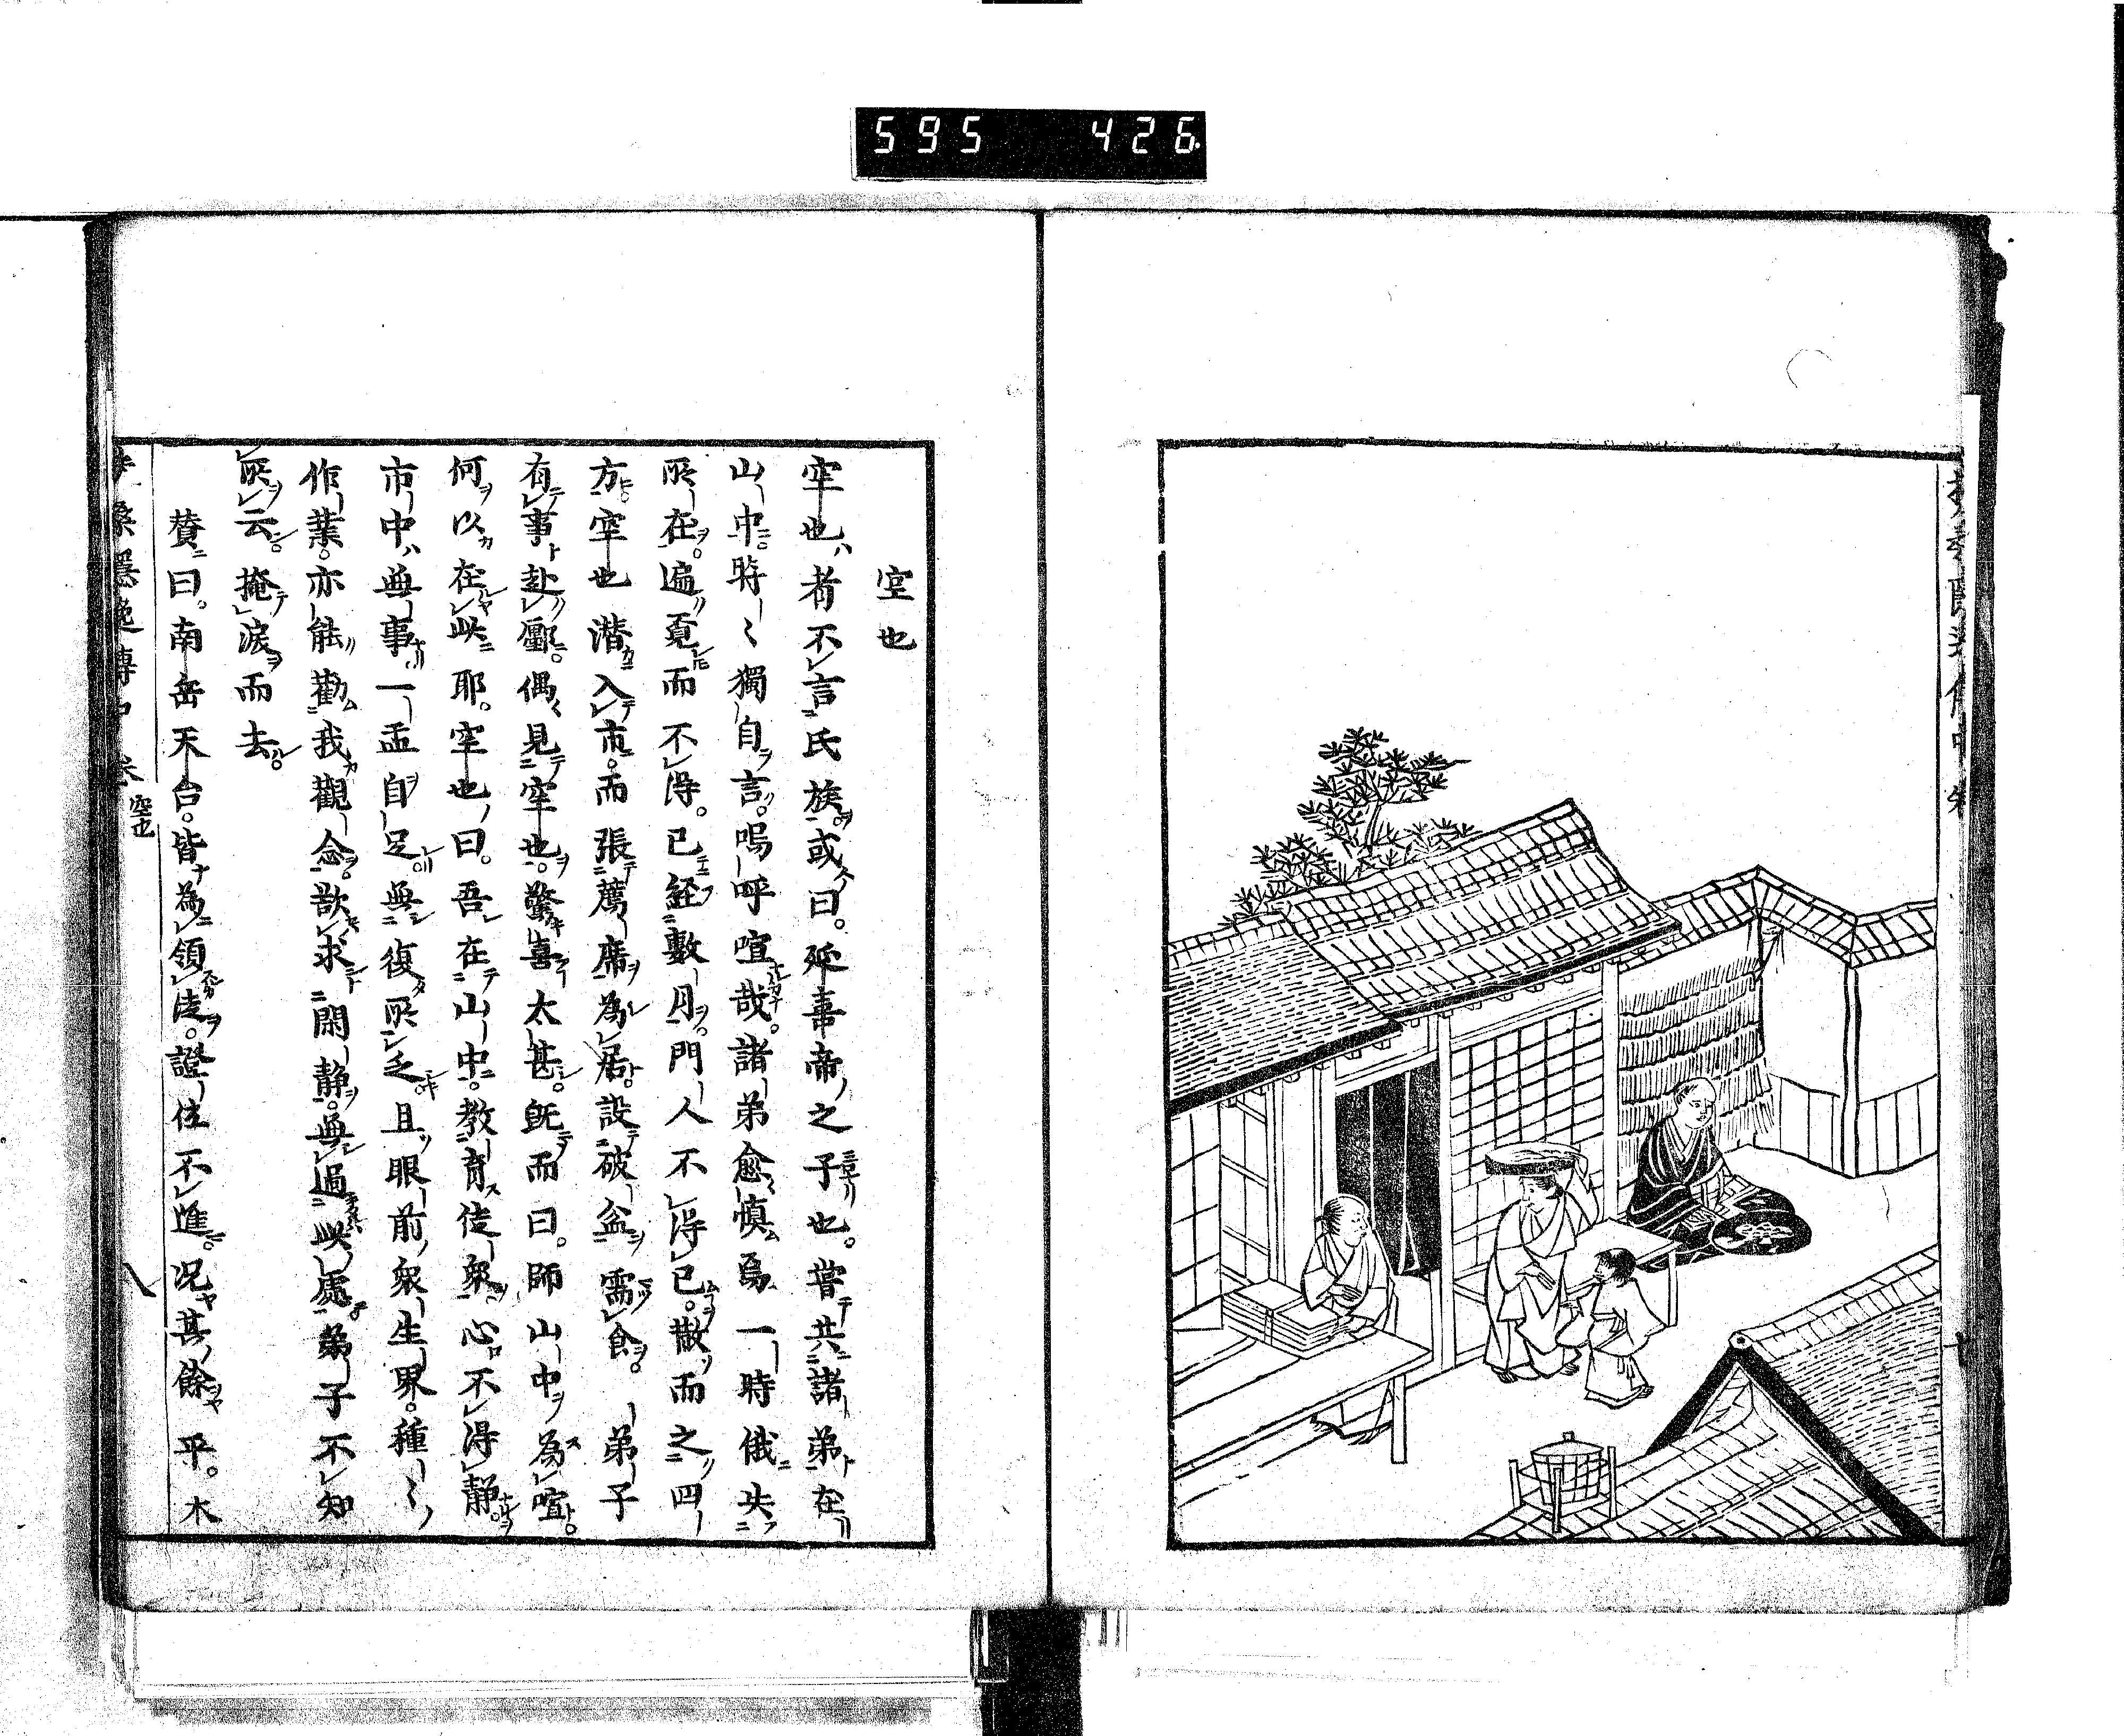 595 426
空也
空也者不言氏族或曰。延喜帝之子也。嘗共諸弟在
山中。時〻獨自言。嗚呼喧哉。諸弟愈慎焉一時俄失
所在。遍覓而不得。已経數月。門人不得已。散而之四
方。空也潜入市。而張薦席為居。設破盆需食。弟子
有事赴鄽。偶見空也。驚喜太甚。既而曰。師山中為喧。
何以在此耶。空也曰。吾在山中。教育徒衆。心不得静。
市中無事一盂自足。無復所乏。且眼前衆生界。種〻
作業。亦能勸我觀念。欲求閑静。無過此處。弟子不知
所云。掩涙而去。
賛曰。南岳天台。皆為領徒。證位不進。况其餘乎。木
扶桑隱逸傳中卷 空也 八